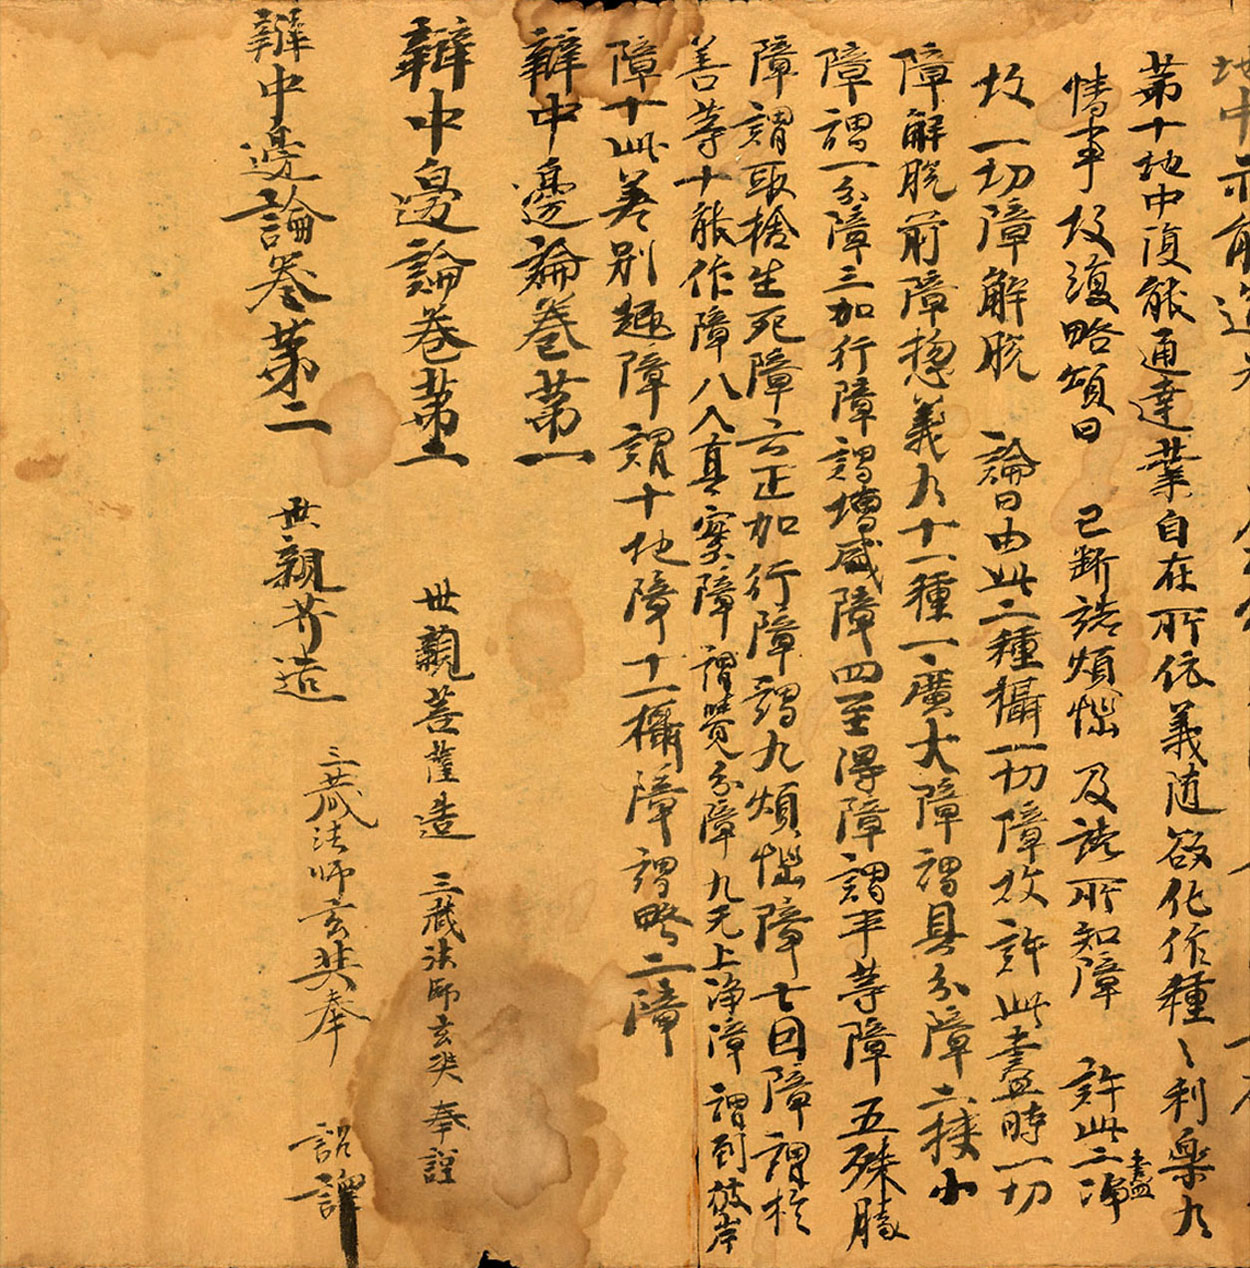 地中
第十地中復能通達業自在所依義随欲化作種〻利樂九
情事故復略頌曰 已斷諸煩惱 及諸所知障 許此二淨盡
故 一切障解脫 論曰由此二種攝一切障故許此盡時一切
障解脫前障揔義九十一種一廣大障謂具分障二狹小
障謂一分障三加行障謂增盛障四至得障謂平等障五殊勝
障謂取捨生死障六正加行障謂九煩惱障七因障謂於
善等十能作障八入真實障謂覺分障九无上淨障謂到彼岸
障十此差別趣障謂十地障十一攝障謂略二障
辯中邊論卷第一
辯中邊論卷第二 世親菩薩造 三藏法師玄奘奉謹
辯中邊論卷第二 世親菩造 三藏法師玄奘奉 詔譯